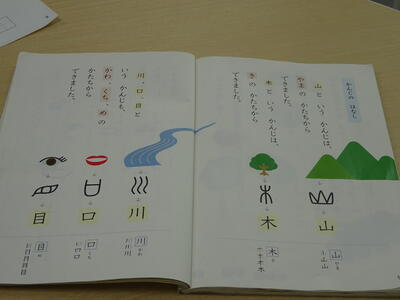 かんじの はなし
山と いう かんじは、
やまの かたちから
できました。
木と いう かんじは、
きの かたちから
できました。
山
木
山 やま
木 き
川、口、目と
いう かんじも、
かわ、くち、めの
かたちから
できました。
川
口
目
川 かわ
口 くち
目 め